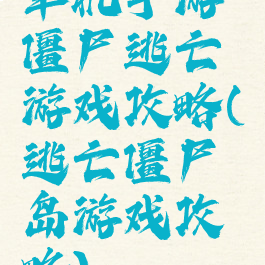 单机手游
僵尸逃亡
游戏攻略(
逃亡僵尸
岛游戏攻
略)